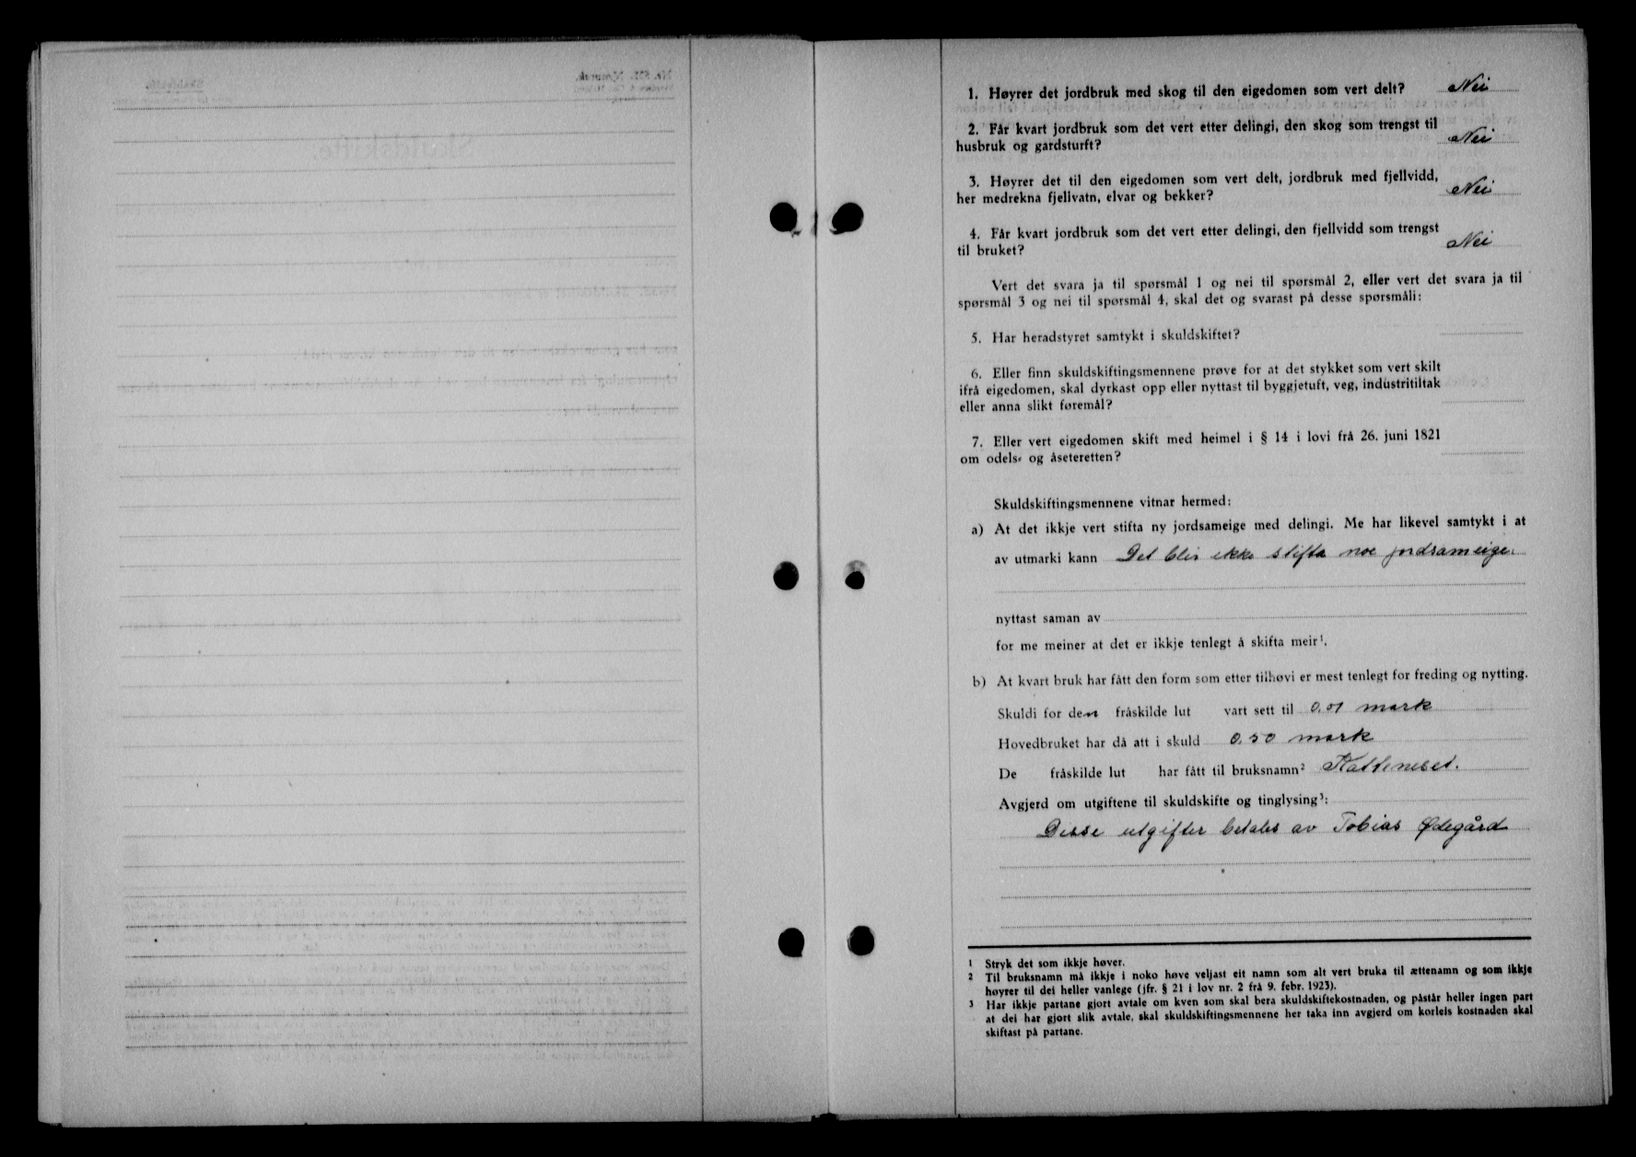 1. Høyrer det jordbruk med skog til den eigedomen som vert delt? Nei
2. Får kvart jordbruk som det vert etter delingi, den skog som trengst til
husbruk og gardsturft? Nei
3. Høyrer det til den eigedomen som vert delt, jordbruk med fjellvidd,
her medrekna fjellvatn, elvar og bekker? Nei
4. Får kvart jordbruk som det vert etter delingi, den fjellvidd som trengst
til bruket? Nei
Vert det svara ja til spørsmål 1 og nei til spørsmål 2, eller vert det svara ja til
spørsmål 3 og nei til spørsmål 4, skal det og svarast på desse spørsmåli:
5. Har heradstyret samtykt i skuldskiftet?
6. Eller finn skuldskiftingsmennene prøve for at det stykket som vert skilt
ifrå eigedomen, skal dyrkast opp eller nyttast til byggjetuft, veg, industritiltak
eller anna slikt føremål?
7. Eller vert eigedomen skift med heimel i § 14 i lovi frå 26. juni 1821
om odels- og åseteretten?
Skuldskiftingsmennene vitnar hermed:
a) At det ikkje vert stifta ny jordsameige med delingi. Me har likevel samtykt i at
av utmarki kann Det blir ikke stifta noe jordsameige.
nyttast saman av
for me meiner at det er ikkje tenlegt å skifta meir¹.
b) At kvart bruk har fått den form som etter tilhøvi er mest tenlegt for freding og nytting.
Skuldi for den fråskilde lut vart sett til 0,01 mark
Hovedbruket har då att i skuld 0,50 mark
De fråskilde lut har fått til bruksnamn² Katteneset.
Avgjerd om utgiftene til skuldskifte og tinglysing³:
Disse utgifter betales av Tobias Ødegård
1 Stryk det som ikkje høver.
2 Til bruksnamn må ikkje i noko høve veljast eit namn som alt vert bruka til ættenamn og som ikkje
høyrer til dei heller vanlege (jfr. § 21 i lov nr. 2 frå 9. febr. 1923).
3 Har ikkje partane gjort avtale om kven som skal bera skuldskiftekostnaden, og påstår heller ingen part
at dei har gjort slik avtale, skal skuldskiftingsmennene her taka inn avgjerd om korleis kostnaden skal
skiftast på partane.